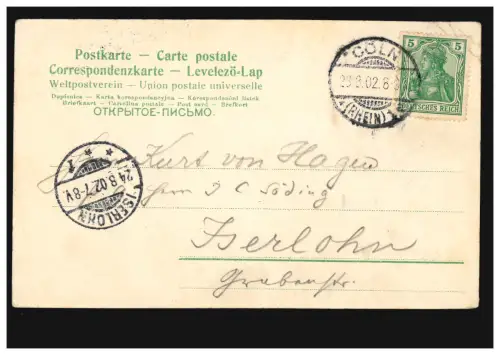 Postkarte — Carte postale
Correspondenzkarte — Levelező-Lap
Weltpostverein — Union postale universelle
Dopisnice — Karta korespondencyjna — Korespondenční lístek
Briefkaart — Cartolina postale — Post card — Brefkort
ОТКРЫТОЕ-ПИСЬМО.
CÖLN
.02.8
(RHEIN)
5 5
DEUTSCHES REICH
Kurt von Hagen
Iserlohn
Grabenstr.
1
24.8.02.7-8V.
ISERLOHN